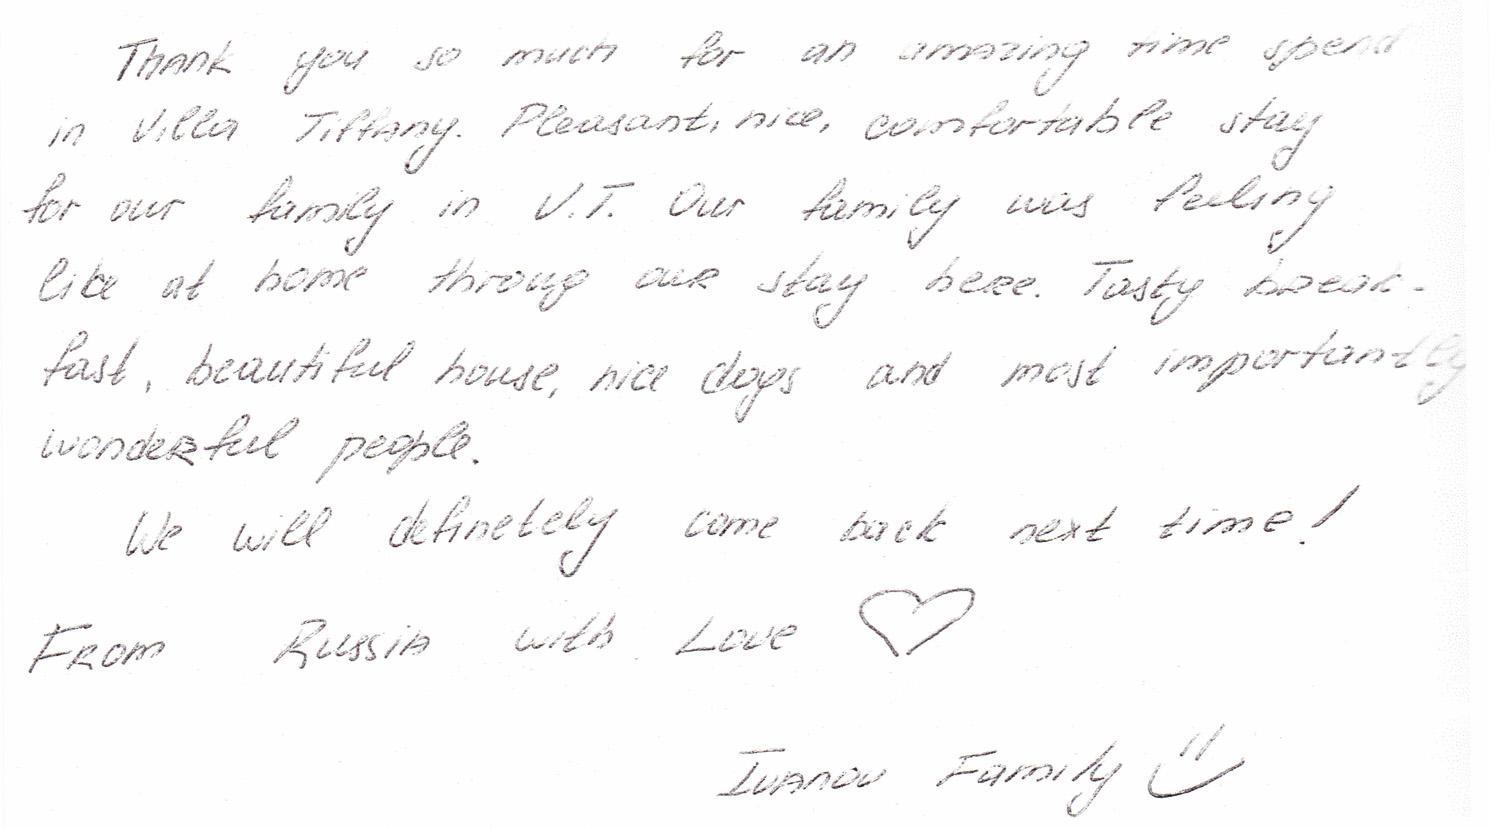 Thank you so much for an amazing time spend
in Villa Tiffany. Pleasant, nice, comfortable stay
for our family in V.T. Our family was feeling
like at home throug our stay here. Tasty break-
fast, beautiful house, nice dogs and most importantly
wonderful people.
We will definetely come back next time!
From Russia with Love ♡
Ivanov Family